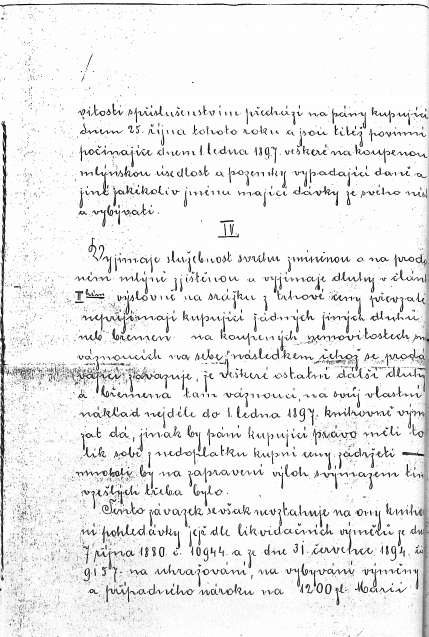 vitosti s příslušenstvím přechází na pány kupující
dnem 25. října tohoto roku a jsou titéž povinni
počínajíce dnem 1. ledna 1897. veškeré na koupenou
mlýnskou usedlost a pozemky vypadající daně a
jiné jakékoliv jméno mající dávky ze svého
a vybývati.
IV.
Vyjímaje služebnost svrchu zmíněnou a na prod
ném mlýně zjištěnou a vyjímaje dluhy v člán
II hém výslovně na srážku z trhové ceny převzaté
nepřijímají kupující žádných jiných dluhů
neb břemen na koupených nemovitostech
váznoucích na sebe, následkem čehož se prodá
vající zavazuje, je veškeré ostatní další dluhy
a břemena tam váznoucí, na svůj vlastní
náklad nejdéle do 1. ledna 1897. knihovně vym
zat dá, jinak by páni kupující právo měli to
lik sobě z nedoplatku kupní ceny zadržeti
mnoholi by na zapravení výloh výmazem tím
vzešlých třeba bylo.
Tento závazek se však nevztahuje na ony kniho
ní pohledávky jejž dle likvidačních výměrů ze dn
7 října 1880. č. 10944. a ze dne 31. července 1894. č
9157. na uhražování, na vybývání výměny
a případného nároku na 1200 zl. Marii